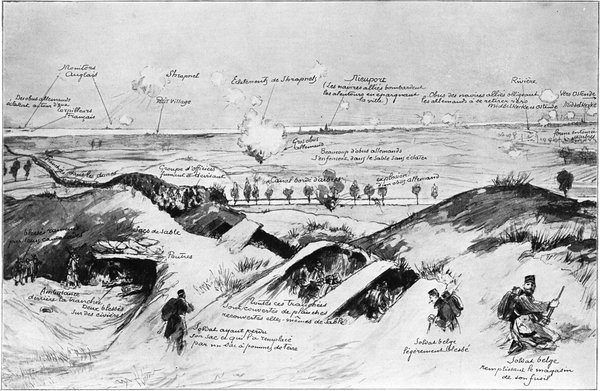 Monitors
Anglais
Shrapnel
Eclatements de Shrapnels
Nieuport
(Les navires alliés bombardent
les alentours en épargnant
la ville)
Obus des navires alliés obligeant
les allemands à se retirer vers
Middelkerke et Ostende
Rivière
Vers Ostende
Middelkerke
Des obus allemands
éclatent autour d'une
torpilleurs
français
Petit Village
Gros obus
allemands
Beaucoup d'obus allemands
s'enfoncent dans le sable sans éclater
Ferme
dans les dunes
Groupe d'officiers
Canal bordé d'arbres
explosion
d'un obus allemand
Sacs de sable
Poutres
Ambulance
derrière la tranchée
deux blessés
sur des civières
Toutes ces tranchées
sont couvertes de planches
recouvertes elles-mêmes de sable
Soldat ayant perdu
son sac et qui l'a remplacé
par un sac à pommes de terre
Soldat belge
légèrement blessé
Soldat belge
remplissant le magasin
de son fusil